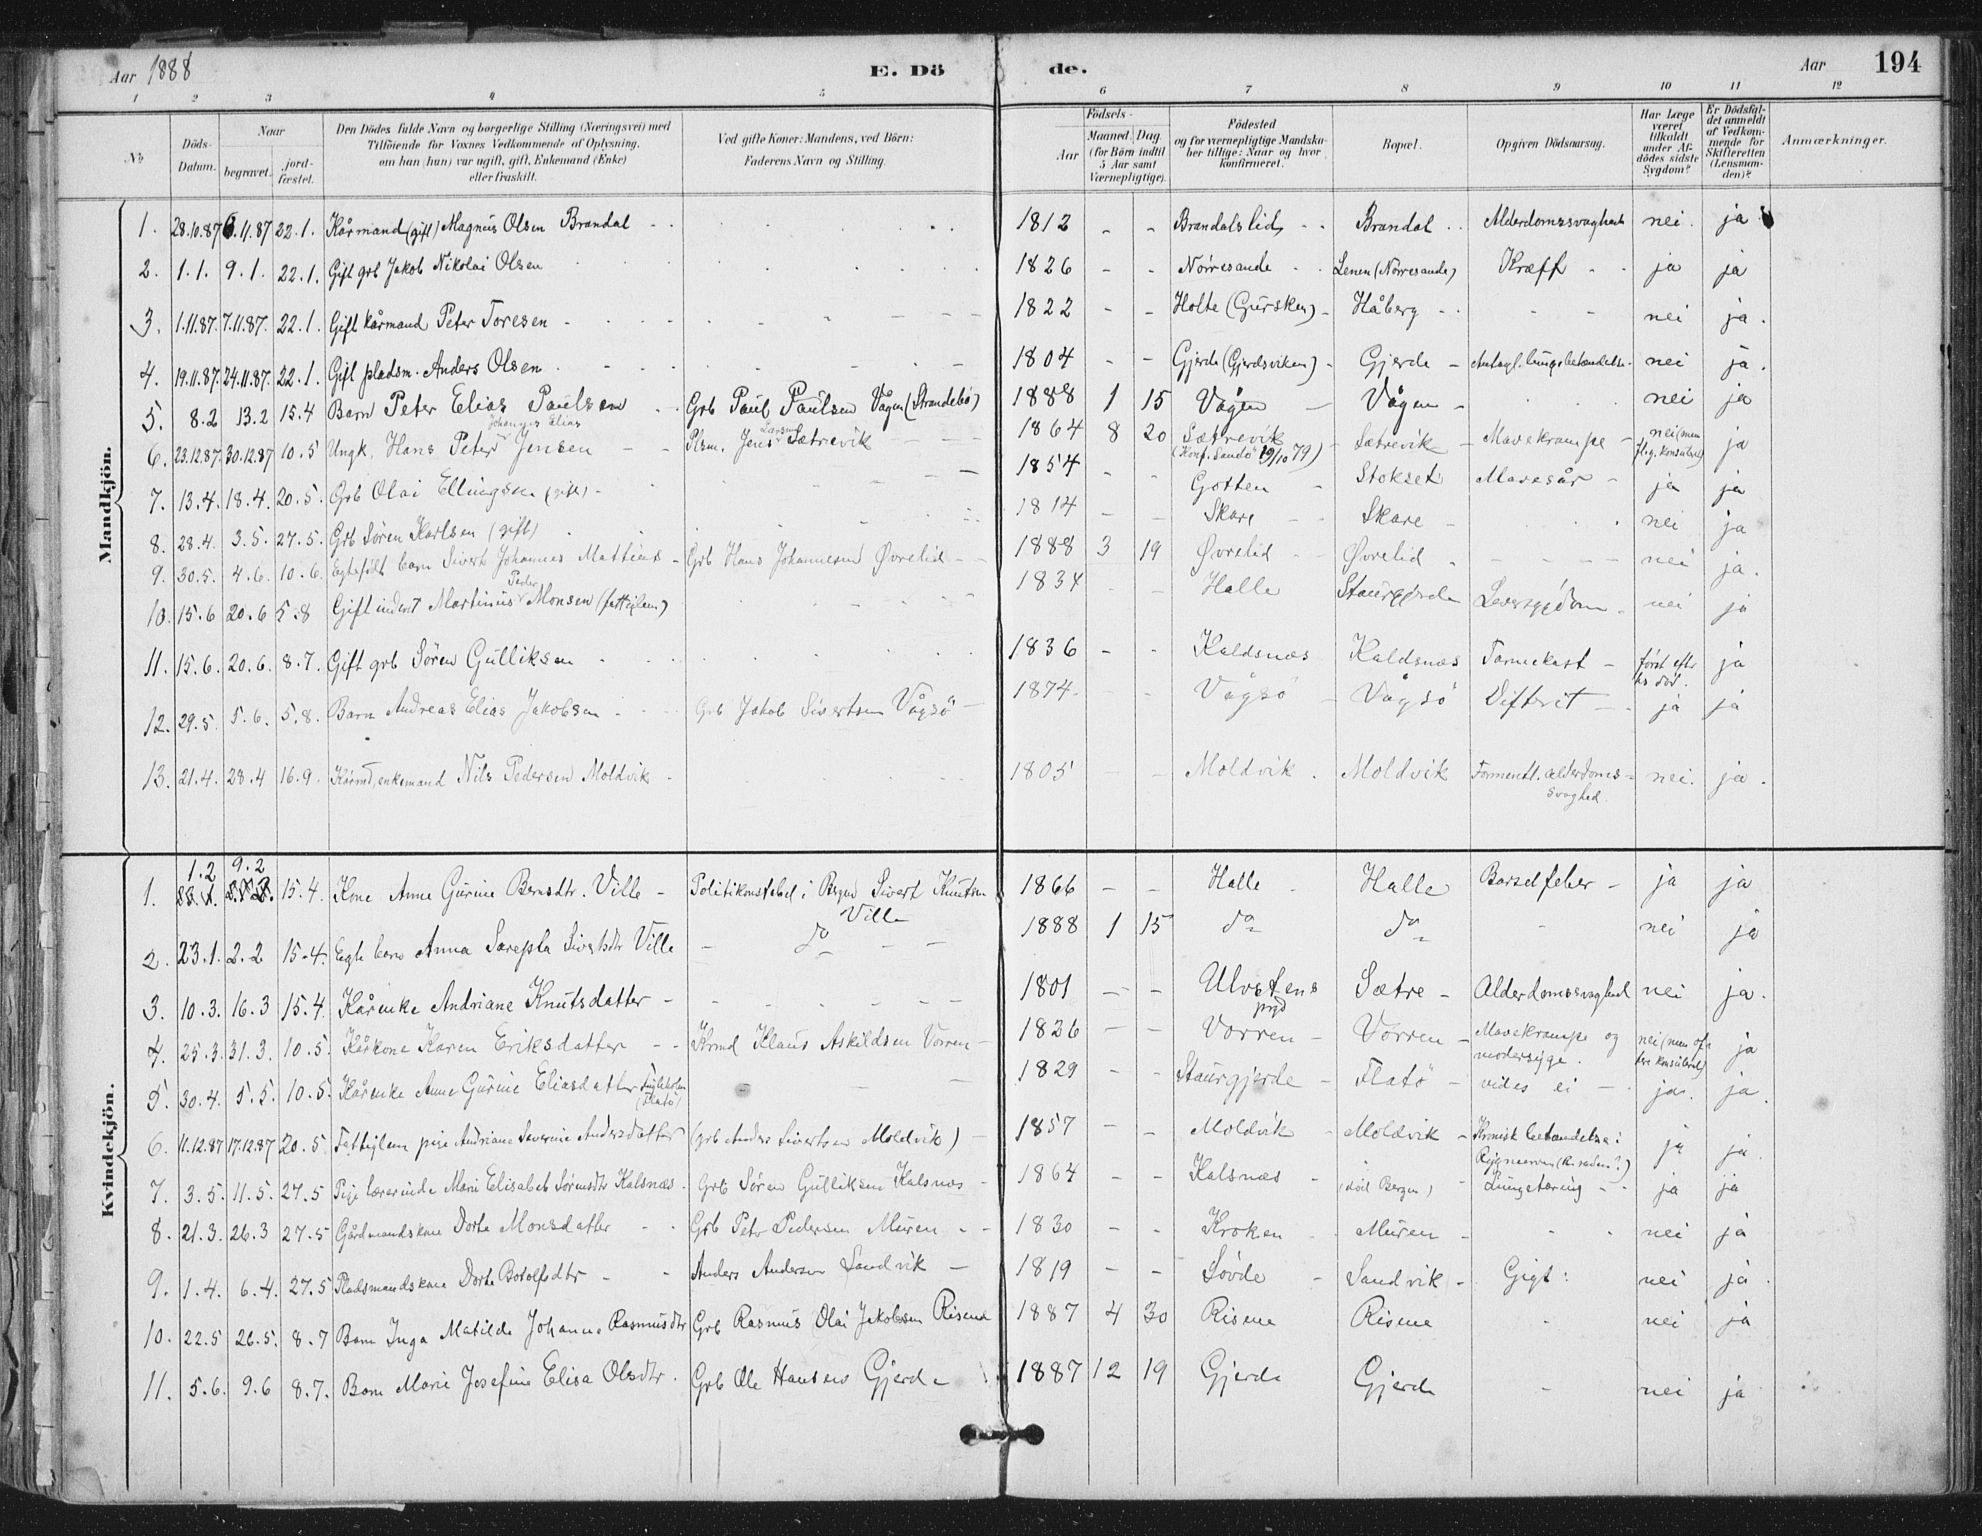 Aar 1888 E. Dö de. Aar 194
1 2 3 4 5 6 7 8 9 10 11 12
No Döds-Datum. Naar begravet. jordfæstet. Den Dödes fulde Navn og borgerlige Stilling (Næringsvei) med Tilföiende for Voxnes Vedkommende af Oplysning, om han (hun) var ugift, gift, Enkemand (Enke) eller fraskilt. Ved gifte Koner: Mandens, ved Börn: Faderens Navn og Stilling. Födsels- Aar Maaned. Dag. (for Börn indtil 5 Aar samt Værnepligtige). Födested og for værnepligtige Mandskaber tillige: Naar og hvor konfirmeret. Bopæl. Opgiven Dödsaarsag. Har Læge været tilkaldt under Afdödes sidste Sygdom? Er Dödsfaldet anmeldt af Vedkommende for Skifteretten (Lensmanden)? Anmærkninger.
Mandkjön.
1. 28.10.87 6.11.87 22.1. Kårmand (gift) Magnus Olsen Brandal 1812 - - Brandalslid Brandal Alderdomssvaghed nei ja
2. 1.1. 9.1. 22.1. Gift grb Jakob Nikolai Olsen 1826 - - Nörresande Lenen (Nörresande) Kræft ja ja
3. 1.11.87. 7.11.87. 22.1. Gift kårmand Peter Toresen 1822 - - Holte (Gursken) Håberg - - nei ja.
4. 19.11.87. 24.11.87. 22.1. Gift pladsm. Anders Olsen 1804 - - Gjerde (Gjerdsviken) Gjerde Antagl. lungebetændelse nei ja.
5. 8.2 13.2 15.4 Barn Peter Elias Paulsen Grb Paul Paulsen Vågen (Strandebö) 1888 1 15 Vågen Vågen nei ja
Johannes Elias Larsen
6. 23.12.87. 30.12.87 10.5 Ungk. Hans Peter Jensen Plsm. Jens Sætrevik 1864 8 20 Sætrevik (Konf. Sandö 19/10 79) Sætrevik Mavekrampe nei (men konsulteret) ja
7. 13.4. 18.4. 20.5. Grb Olai Ellingsen (gift) 1854 - - Gotten Stokset Mavesår ja ja
8. 28.4. 3.5. 27.5. Grb Sören Karlsen (gift) 1814 - - Skare Skare nei ja
9. 30.5. 4.6. 10.6. Egtefödt barn Sivert Johannes Mattias Grb Hans Johannesen Övrelid 1888 3 19 Øvrelid Øvrelid nei ja.
Peder
10. 15.6 20.6 5.8 Gift inderst Martinus Monsen (fattiglem) 1834 - - Halle Staurgjerde Leversygdom nei ja
11. 15.6. 20.6. 8.7. Gift grb Sören Gulliksen 1836 - - Kaldsnæs Kaldsnæs först efter ja
12. 29.5. 5.6. 5.8. Barn Andreas Elias Jakobsen Grb Jakob Sivertsen Vågsö 1874 - - Vågsö Vågsö Difterit ja ja
13. 21.4. 28.4 16.9. Kårmd, enkemand Nils Pedersen Moldvik 1805 - - Moldvik Moldvik Formentl. alderdoms-svaghed. nei. ja.
Kvindekjön.
1.2 9.2
1. 15.4. Kone Anne Gurine Berntsdtr. Ville Politikonstabel i Bergen Sivert Knutsen Ville 1866 - - Halle Halle Barselfeber ja ja
2. 23.1. 2.2 15.4. Egte barn Anna Sarepta Sivertsdtr Ville do 1888 1 15 do do - nei ja
3. 10.3. 16.3 15.4. Kårenke Andriane Knutsdatter 1801 - - Ulvstens prgd Sætre Alderdomssvaghed nei ja.
4. 25.3. 31.3. 10.5. Kårkone Karen Eriksdatter Krmd Klaus Askildsen Vorren 1826 - - Vorren Vorren Mavekrampe og modersyge. nei (men ofte konsulteret) ja
5. 30.4. 5.5. 10.5. Kårenke Anne Gurine Eliasdatter (Flatö) 1829 - - Staurgjerde Flatö vides ei ja. ja.
6. 11.12.87 17.12.87 20.5 Fattiglem pige Andriane Severine Andersdatter (grb Anders Sivertsen Moldvik) 1857 - - Moldvik Moldvik Kronisk betændelse i ja ja.
7. 3.5. 11.5. 27.5 Pige lærerinde Marie Elisabet Sörensdtr Kalsnæs Grb Sören Gulliksen Kalsnæs 1864 - - Kalsnæs (död Bergen) Lungetæring ja ja
8. 21.3. 26.3 27.5 Gårdmandskone Dorte Monsdatter Grb Peter Pedersen Muren 1830 - - Kroken Muren nei ja
9. 1.4. 6.4. 27.5 Pladsmandskone Dorte Botolfsdtr Anders Andersen Sandvik 1819 - - Søvde Sandvik Gigt nei ja.
10. 22.5 26.5. 8.7 Barn Inga Matilde Johanne Rasmusdtr Grb Rasmus Olai Jakobsen Risene 1887 4 30 Risene Risene nei ja
11. 5.6. 9.6 8.7. Barn Marie Josefine Elisa Olsdtr. Grb Ole Hansen Gjerde 1887 12 19 Gjerde Gjerde - nei ja